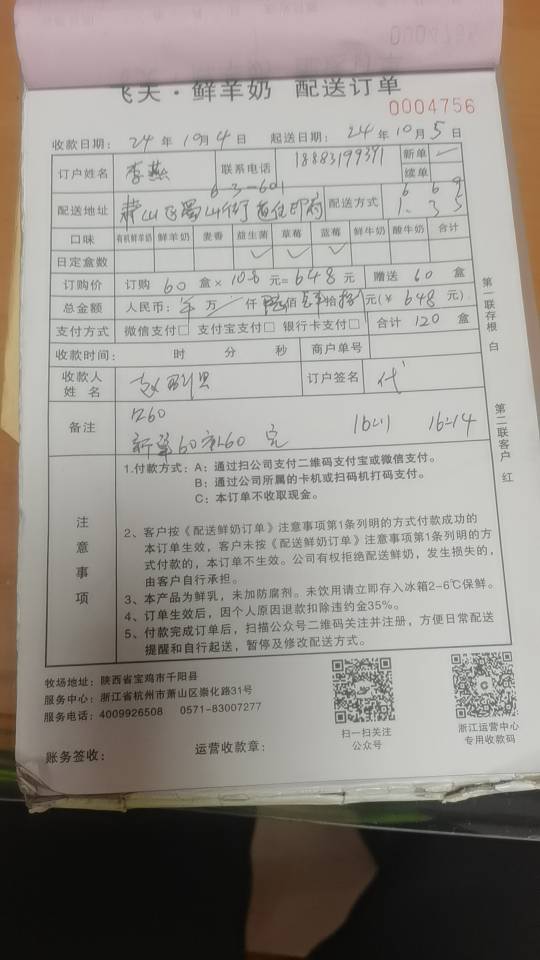 飞天·鲜羊奶 配送订单
0004756
收款日期： 24 年 10 月 4 日 起送日期： 24 年 10 月 5 日
订户姓名 李燕 联系电话 18883199391 新单 ✓
续单
6-3-601
配送地址 萧山区蜀山街 配送方式
口味 有机鲜羊奶 鲜羊奶 麦香 益生菌 草莓 蓝莓 鲜牛奶 酸牛奶 合计
日定盒数 ✓ ✓ ✓
订购价 订购 60 盒× 10.8 元= 648 元 赠送 60 盒
总金额 人民币： 万 仟 佰 拾 元(￥ 648 元)
支付方式 微信支付□ 支付宝支付□ 银行卡支付□ 合计 120 盒
收款时间： 时 分 秒 商户单号
收款人姓名 订户签名 代
备注 60
新单60 60 16-1 16-14
注意事项
1.付款方式：A：通过扫公司支付二维码支付宝或微信支付。
B：通过公司所属的卡机或扫码机打码支付。
C：本订单不收取现金。
2、客户按《配送鲜奶订单》注意事项第1条列明的方式付款成功的
本订单生效，客户未按《配送鲜奶订单》注意事项第1条列明的方
式付款的，本订单不生效。公司有权拒绝配送鲜奶，发生损失的，
由客户自行承担。
3、本产品为鲜乳，未加防腐剂。未饮用请立即存入冰箱2-6℃保鲜。
4、订单生效后，因个人原因退款扣除违约金35%。
5、付款完成订单后，扫描公众号二维码关注并注册，方便日常配送
提醒和自行起送，暂停及修改配送方式。
第一联存根 白
第二联客户 红
牧场地址：陕西省宝鸡市千阳县
服务中心：浙江省杭州市萧山区崇化路31号
服务电话：4009926508 0571-83007277
扫一扫关注
公众号
浙江运营中心
专用收款码
账务签收： 运营收款章：